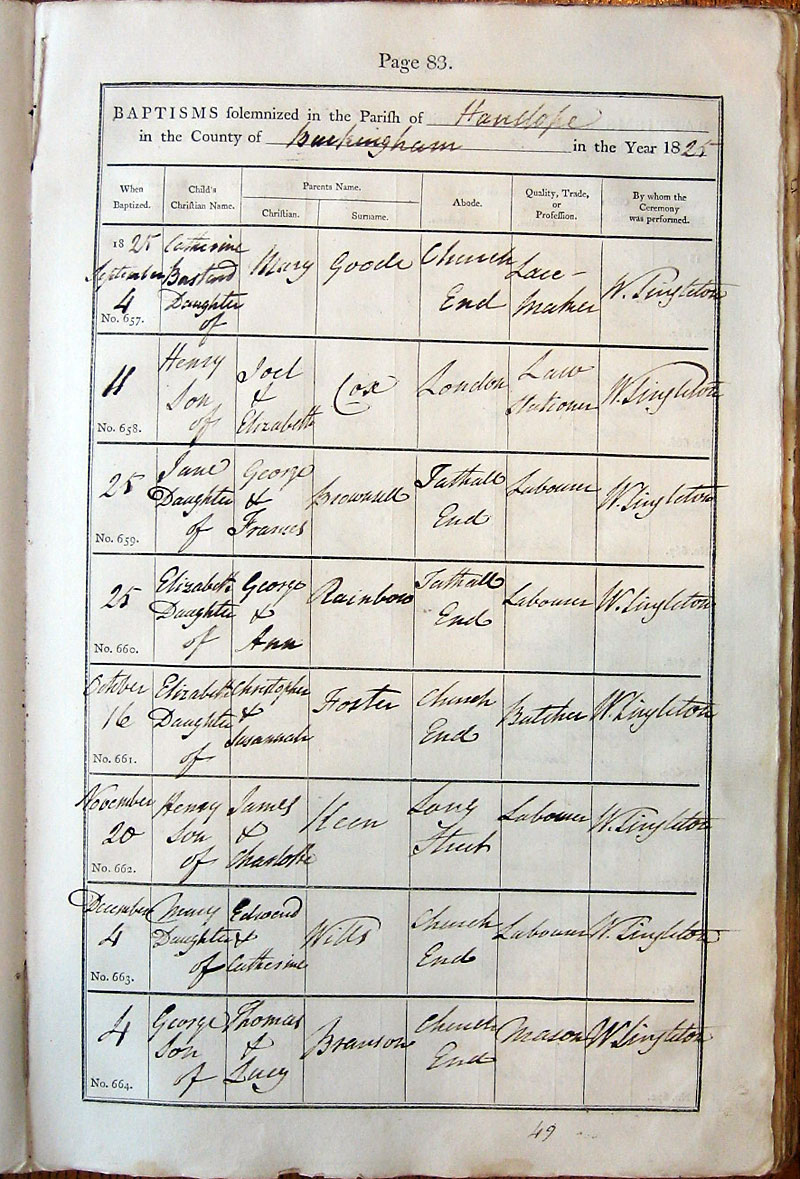 Page 83.
BAPTISMS solemnized in the Parish of Hanslope
in the County of Buckingham in the Year 1825
When Baptized. Child's Christian Name. Parents Name. Abode. Quality, Trade, or Profession. By whom the Ceremony was performed.
Christian. Surname.
1825 September 4 No. 657. Catherine Bastard Daughter of Mary Goode Church End Lace-Maker W. Singleton
11 No. 658. Henry Son of Joel & Elizabeth Cox London Law Stationer W. Singleton
25 No. 659. Jane Daughter of George & Frances Brownsell Tathall End Labourer W. Singleton
25 No. 660. Elizabeth Daughter of George & Ann Rainbow Tathall End Labourer W. Singleton
October 16 No. 661. Elizabeth Daughter of Christopher & Susannah Foster Church End Butcher W. Singleton
November 20 No. 662. Henry Son of James & Charlotte Keen Long Street Labourer W. Singleton
December 4 No. 663. Mary Daughter of Edward & Catherine Wills Church End Labourer W. Singleton
4 No. 664. George Son of Thomas & Lucy Branson Church End Mason W. Singleton
49